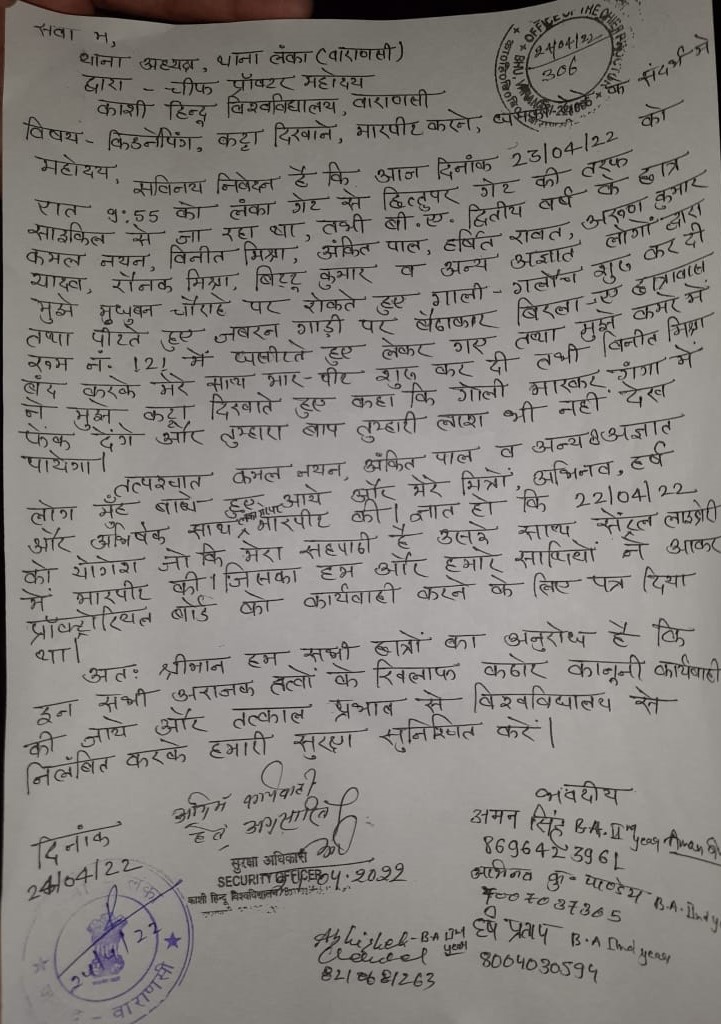 सेवा में,
थाना अध्यक्ष, थाना लंका (वाराणसी)
द्वारा - चीफ प्रॉक्टर महोदय
काशी हिन्दू विश्वविद्यालय, वाराणसी
OFFICE OF THE CHIEF
24/04/22
306
विषय - किडनैपिंग, कट्टा दिखाने, मारपीट करने, के संदर्भ में
महोदय, सविनय निवेदन है कि आज दिनांक 23/04/22 को
रात 9:55 को लंका गेट से हित्तुपर गेट की तरफ
साइकिल से जा रहा था, तभी बी.ए. द्वितीय वर्ष के छात्र
कमल नयन, विनीत मिश्रा, अंकित पाल, हर्षित रावत, अरुण कुमार
यादव, रौनक मिश्रा, बिट्टू कुमार व अन्य अज्ञात लोगों द्वारा
मुझे मधुबन चौराहे पर रोकते हुए गाली-गलौच शुरू कर दी
तथा पीटते हुए जबरन गाड़ी पर बैठाकर बिरला-ए छात्रावास
रूम नं. 121 में घसीटते हुए लेकर गए तथा मुझे कमरे में
बंद करके मेरे साथ मार-पीट शुरू कर दी तभी विनीत मिश्रा
ने मुझे कट्टा दिखाते हुए कहा कि गोली मारकर गंगा में
फेंक देंगे और तुम्हारा बाप तुम्हारी लाश भी नहीं देख
पायेगा।
तत्पश्चात कमल नयन, अंकित पाल व अन्य अज्ञात
लोग मुँह बांधे हुए आये और मेरे मित्रों, अभिनव, हर्ष
और अभिषेक साथ मारपीट की। ज्ञात हो कि 22/04/22
को योगेश जो कि मेरा सहपाठी है उसके साथ सेंट्रल लाइब्रेरी
में मारपीट की। जिसका हम और हमारे साथियों ने आकर
प्रॉक्टोरियल बोर्ड को कार्यवाही करने के लिए पत्र दिया
था।
अतः श्रीमान हम सभी छात्रों का अनुरोध है कि
इन सभी अराजक तत्वों के खिलाफ कठोर कानूनी कार्यवाही
की जाये और तत्काल प्रभाव से विश्वविद्यालय से
निलंबित करके हमारी सुरक्षा सुनिश्चित करें।
अग्रिम कार्यवाही
हेतु अग्रसारित
दिनांक
24/04/22
सुरक्षा अधिकारी
SECURITY OFFICER
04.2022
काशी हिन्दू विश्वविद्यालय
भवदीय
अमन सिंह B.A. II year Aman
8696423961
अभिनव कु. पाण्डेय B.A. IInd year
7007037365
हर्ष प्रताप B.A IInd year
8004030594
Abhishek - B.A IInd year
8210681263
लंका
24/4/22
वाराणसी